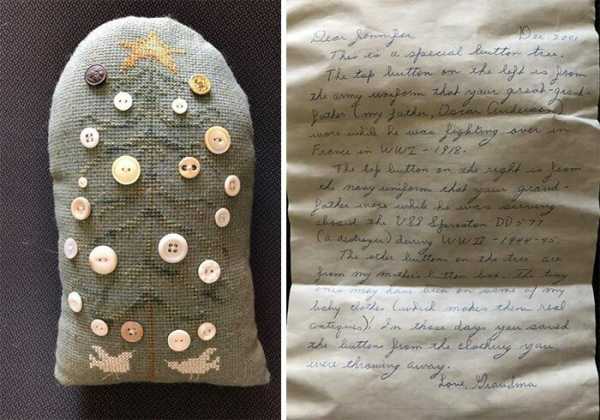 Dear Jennifer Dec. 2001
This is a special button tree.
The top button on the left is from
the army uniform that your great-grand-
father (my father, Oscar Anderson)
wore while he was fighting over in
France in WWI - 1918.
The top button on the right is from
the navy uniform that your grand-
father wore while he was serving
aboard the USS Sproston DD 577
(a destroyer) during WWII - 1944-45.
The other button on the tree are
from my mother's button box. The tiny
ones may have been on some of my
baby clothes (which makes them real
antiques). In those days you saved
the button from the clothing you
were throwing away.
Love, Grandma